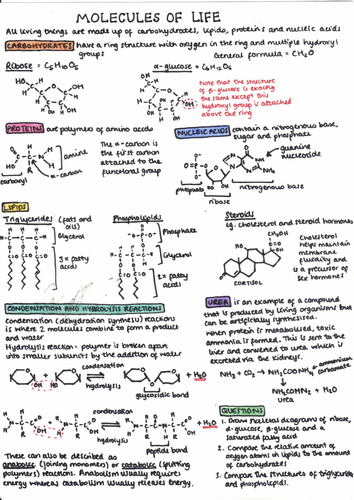 MOLECULES OF LIFE
All living things are made up of carbohydrates, lipids, proteins and nucleic acids
CARBOHYDRATES have a ring structure with oxygen in the ring and multiple hydroxyl
groups
General formula = CH₂O
Ribose = C₅H₁₀O₅
α-glucose = C₆H₁₂O₆
Note that the structure
of β-glucose is exactly
the same except this
hydroxyl group is attached
above the ring
PROTEINS are polymers of amino acids
amine
carbonyl
α-carbon
The α-carbon is
the first carbon
attached to the
functional group
NUCLEIC ACIDS contain a nitrogenous base,
sugar and phosphate
guanine
nucleoside
phosphate
ribose
nitrogenous base
LIPIDS
Triglycerides (fats and
oils)
Glycerol
3x fatty
acids
Phospholipids
Phosphate
Glycerol
2x fatty
acids
Steroids
eg. cholesterol and steroid hormones
CORTISOL
Cholesterol
helps maintain
membrane
fluidity and
is a precursor of
sex hormones
CONDENSATION AND HYDROLYSIS REACTIONS
Condensation (dehydration synthesis) reaction
is where 2 molecules combine to form a product
and water
Hydrolysis reaction = polymer is broken apart
into smaller subunits by the addition of water
condensation
hydrolysis
+ H₂O
glycosidic bond
condensation
hydrolysis
+ H₂O
peptide bond
These can also be described as
anabolic (joining monomers) or catabolic (splitting
polymers) reactions. Anabolism usually requires
energy whereas catabolism usually releases energy.
UREA is an example of a compound
that is produced by living organisms but
can be artificially synthesised.
When protein is metabolised, toxic
ammonia is formed. This is sent to the
liver and converted to urea which is
excreted via the kidneys.
ammonium
carbamate
UREA
QUESTIONS
1. Draw skeletal diagrams of ribose,
α-glucose, β-glucose and a
saturated fatty acid
2. Compare the relative amount of
oxygen atoms in lipids to the amount
of carbohydrates
3. Compare the structures of triglycerides
and phospholipids.